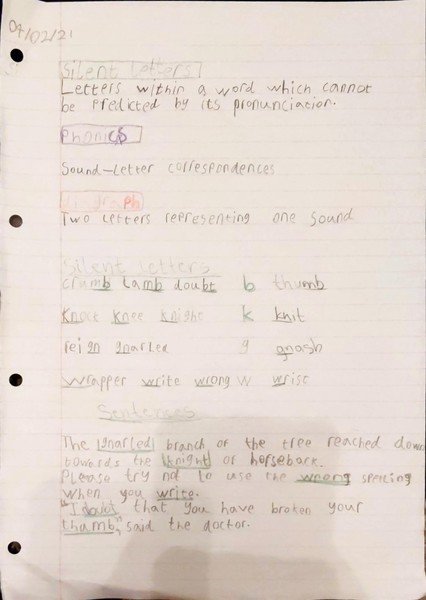 04/02/21
Silent Letters
Letters within a word which cannot
be predicted by its pronunciation.
Phonics
Sound-Letter correspondences
Digraph
Two letters representing one sound
Silent letters
crumb lamb doubt b thumb
Knock Knee Knight k knit
reign gnarled g gnash
wrapper write wrong w wrist
Sentences
The gnarled branch of the tree reached down
towards the knight of horseback.
Please try not to use the weong spelling
when you write.
"I doubt that you have broken your
thamb," said the doctor.